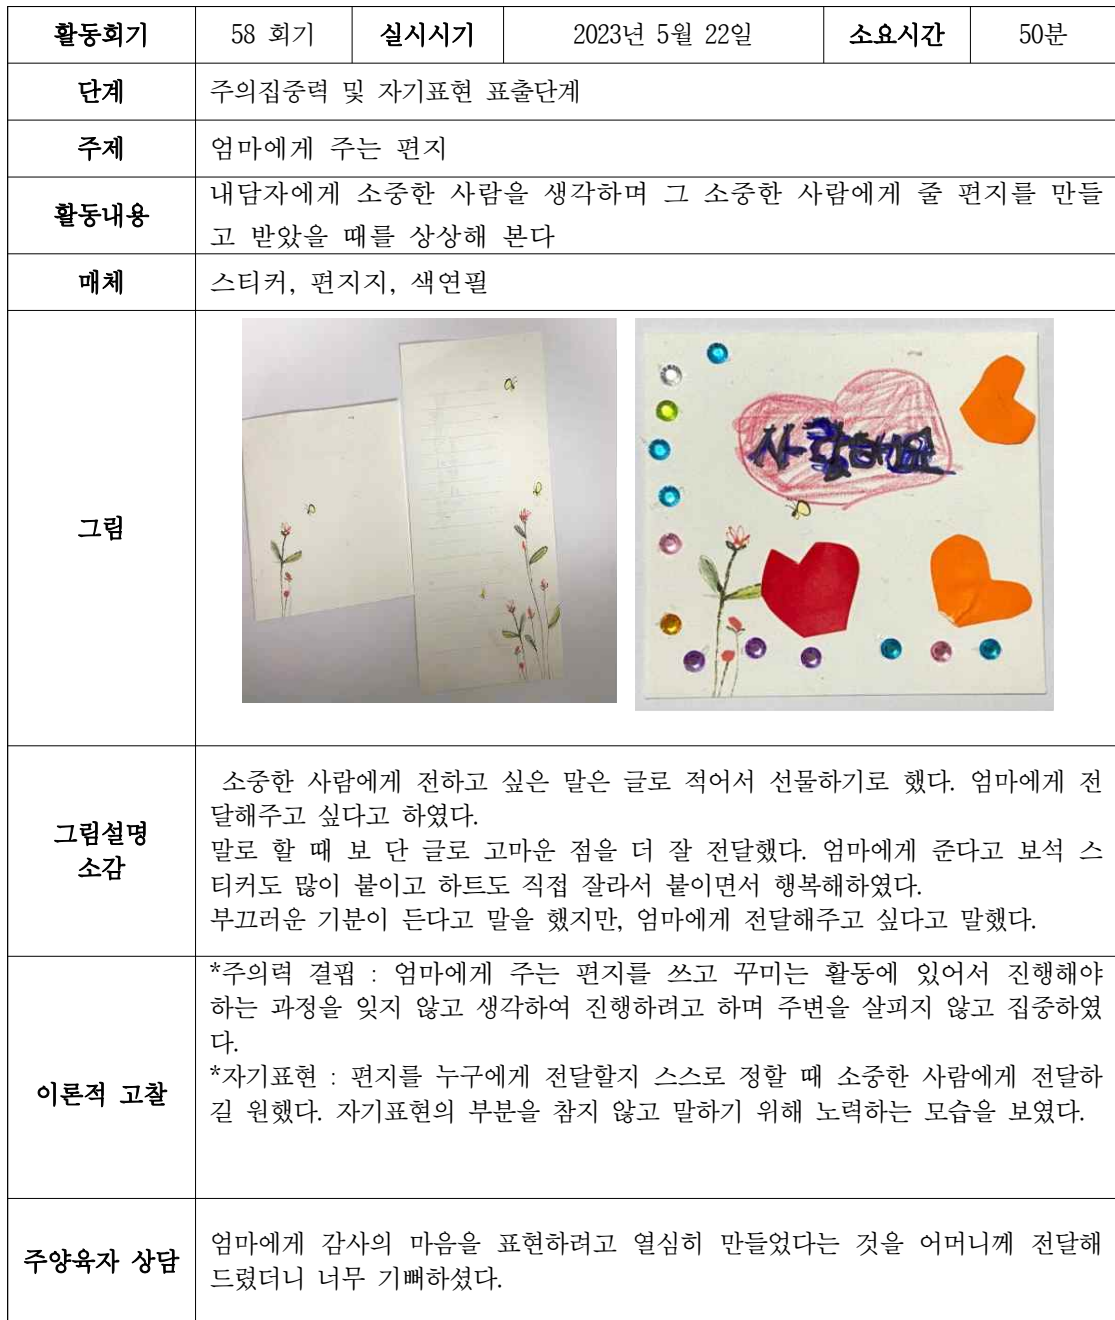 활동회기 58 회기 실시시기 2023년 5월 22일 소요시간 50분
단계 주의집중력 및 자기표현 표출단계
주제 엄마에게 주는 편지
활동내용 내담자에게 소중한 사람을 생각하며 그 소중한 사람에게 줄 편지를 만들
고 받았을 때를 상상해 본다
매체 스티커, 편지지, 색연필
그림
사랑해요
그림설명
소감
소중한 사람에게 전하고 싶은 말은 글로 적어서 선물하기로 했다. 엄마에게 전
달해주고 싶다고 하였다.
말로 할 때 보 단 글로 고마운 점을 더 잘 전달했다. 엄마에게 준다고 보석 스
티커도 많이 붙이고 하트도 직접 잘라서 붙이면서 행복해하였다.
부끄러운 기분이 든다고 말을 했지만, 엄마에게 전달해주고 싶다고 말했다.
이론적 고찰
*주의력 결핍 : 엄마에게 주는 편지를 쓰고 꾸미는 활동에 있어서 진행해야
하는 과정을 잊지 않고 생각하여 진행하려고 하며 주변을 살피지 않고 집중하였
다.
*자기표현 : 편지를 누구에게 전달할지 스스로 정할 때 소중한 사람에게 전달하
길 원했다. 자기표현의 부분을 참지 않고 말하기 위해 노력하는 모습을 보였다.
주양육자 상담
엄마에게 감사의 마음을 표현하려고 열심히 만들었다는 것을 어머니께 전달해
드렸더니 너무 기뻐하셨다.